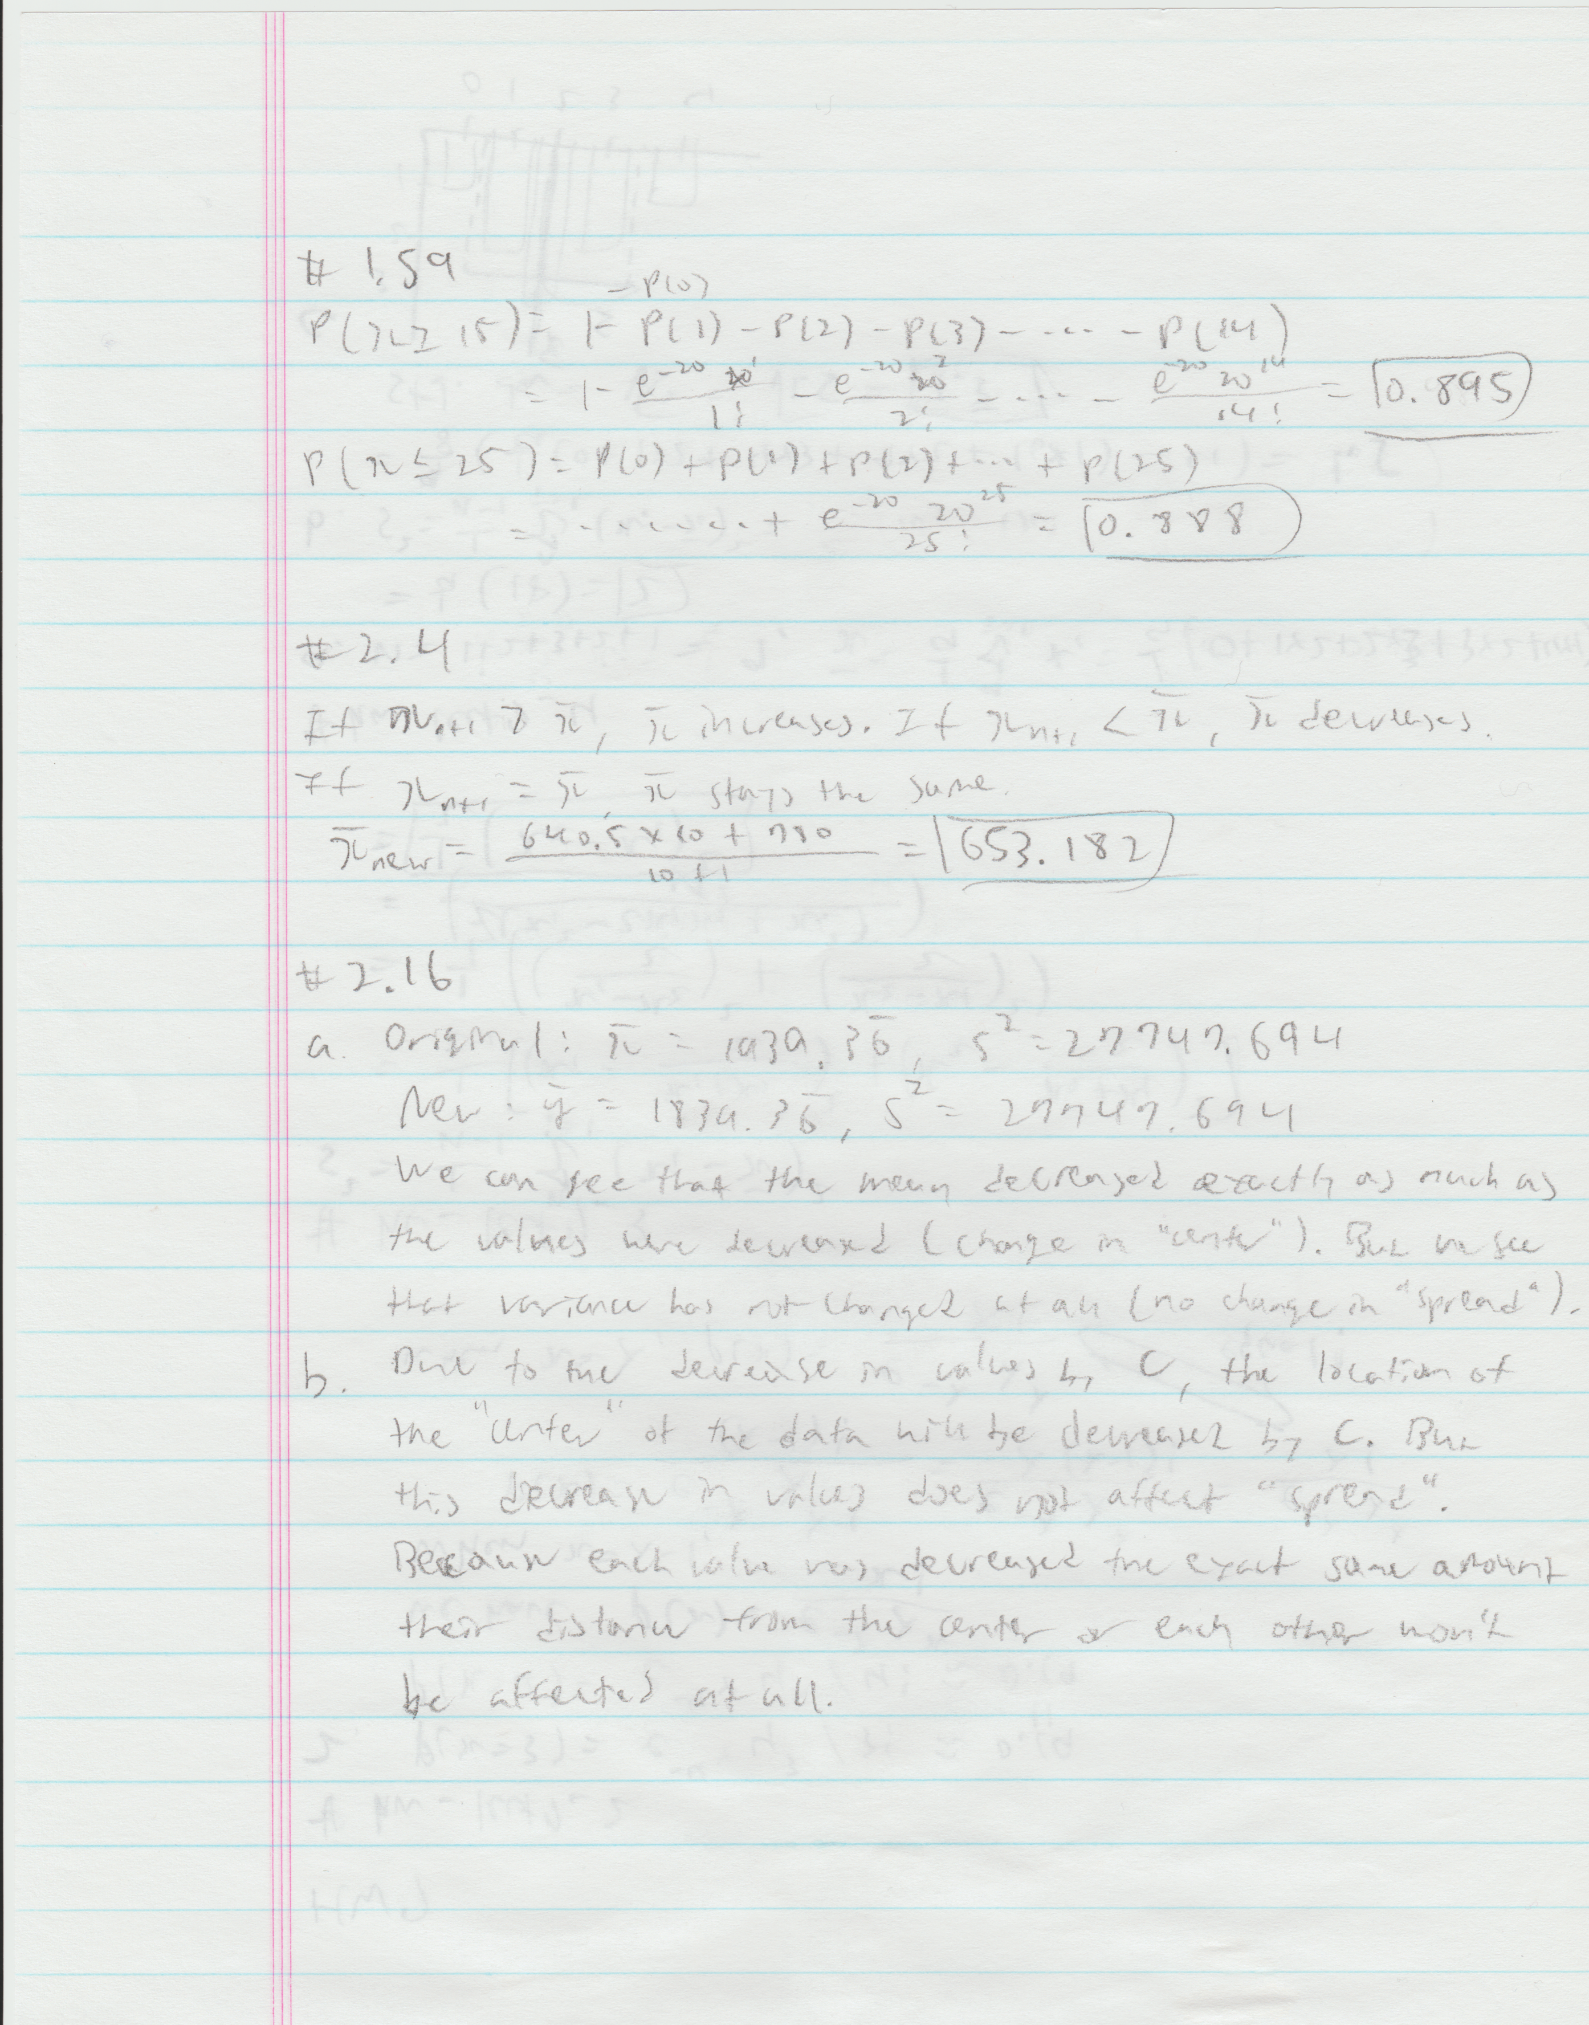 # 1.59
- P(0)
P(x ≥ 15) = 1 - P(1) - P(2) - P(3) - .... - P(14)
= 1 - e^-20 20^1 / 1! - e^-20 20^2 / 2! - .... - e^-20 20^14 / 14! = 0.895
P(x ≤ 25) = P(0) + P(1) + P(2) + ... + P(25)
= ....... + e^-20 20^25 / 25! = 0.888
# 2.4
If x_n+1 > x̄, x̄ increases. If x_n+1 < x̄, x̄ decreases.
If x_n+1 = x̄, x̄ stays the same.
x̄_new = 640.5 x 10 + 780 / 10 + 1 = 653.182
# 2.16
a. Original: x̄ = 1939.36̄, s² = 27747.694
New: ȳ = 1839.36̄, s² = 27747.694
We can see that the mean decreased exactly as much as
the values were decreased (change in "center"). But we see
that variance has not changed at all (no change in "spread").
b. Due to the decrease in values by C, the location of
the "center" of the data will be decreased by C. But
this decrease in values does not affect "spread".
Because each value was decreased the exact same amount
their distance from the center or each other won't
be affected at all.